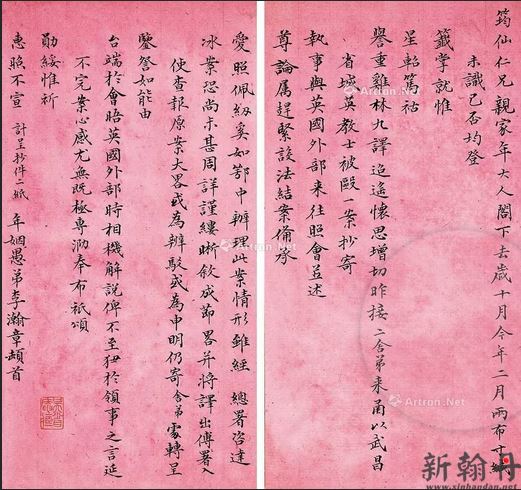 筠仙仁兄親家年大人閣下去歲十月今年二月兩布寸緘
未識已否均登
籤掌就惟
星軺篤祜
譽重雞林九譯迢遙懷思增切昨接二舍弟來函以武昌
省城英教士被毆一案抄寄
執事與英國外部來往照會並述
尊論屬趕緊設法結案備承
愛照佩紉奚如鄂中辦理此案情形雖經 總署咨達
冰案恐尚未甚周詳謹縷晰敘成節畧并將譯出傅署
使查報原案大畧或為辨駁或為申明仍寄舍弟處轉呈
鑒詧如能由
台端於會晤英國外部時相機解說俾不至狃於領事之言延
不完案心感尤無既極專泐奉布祗頌
勛綏惟祈
惠照不宣 計呈抄件二紙 年姻愚弟李瀚章頓首
Artron.Net
Artron.Net
Artron.Net
Artron.Net
新翰丹
www.xinhandan.net